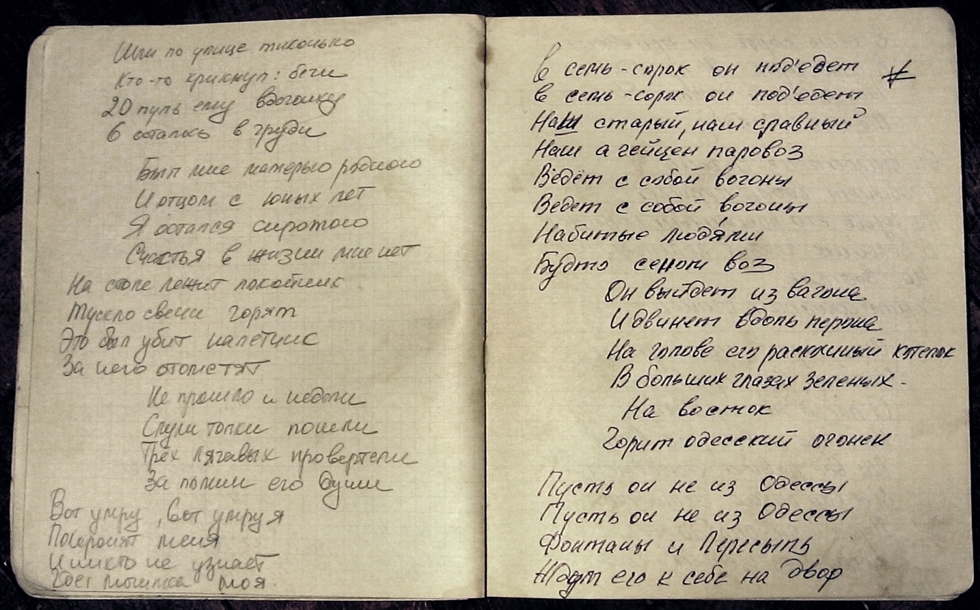 Шли по улице тихонько
Кто-то крикнул: беги
20 пуль ему вдогонку
6 осталось в груди
Был мне матерью родною
И отцом с юных лет
Я остался сиротою
Счастья в жизни мне нет
На столе лежит покойник
Тускло свечи горят
Это был убит налетчик
За него отомстят
Не прошло и недели
Слухи толки пошли
Трёх лягавых провертели
За помин его души
Вот умру, вот умру я
Похоронят меня
И никто не узнает
Где могилка моя.
В семь-сорок он подъедет
В семь-сорок он под'едет
Наш старый, наш славный
Наш агейцен паровоз
Ведёт с собой вогоны
Ведет с собой вогоны
Набитые людями
Будто сеном воз
Он выйдет из вагона
И двинет вдоль перона
На голове его роскошный котелок
В больших глазах зеленых -
На восток
Горит одесский огонек
Пусть он не из Одессы
Пусть он не из Одессы
Фонтаны и Пересыпь
Ждут его к себе на двор